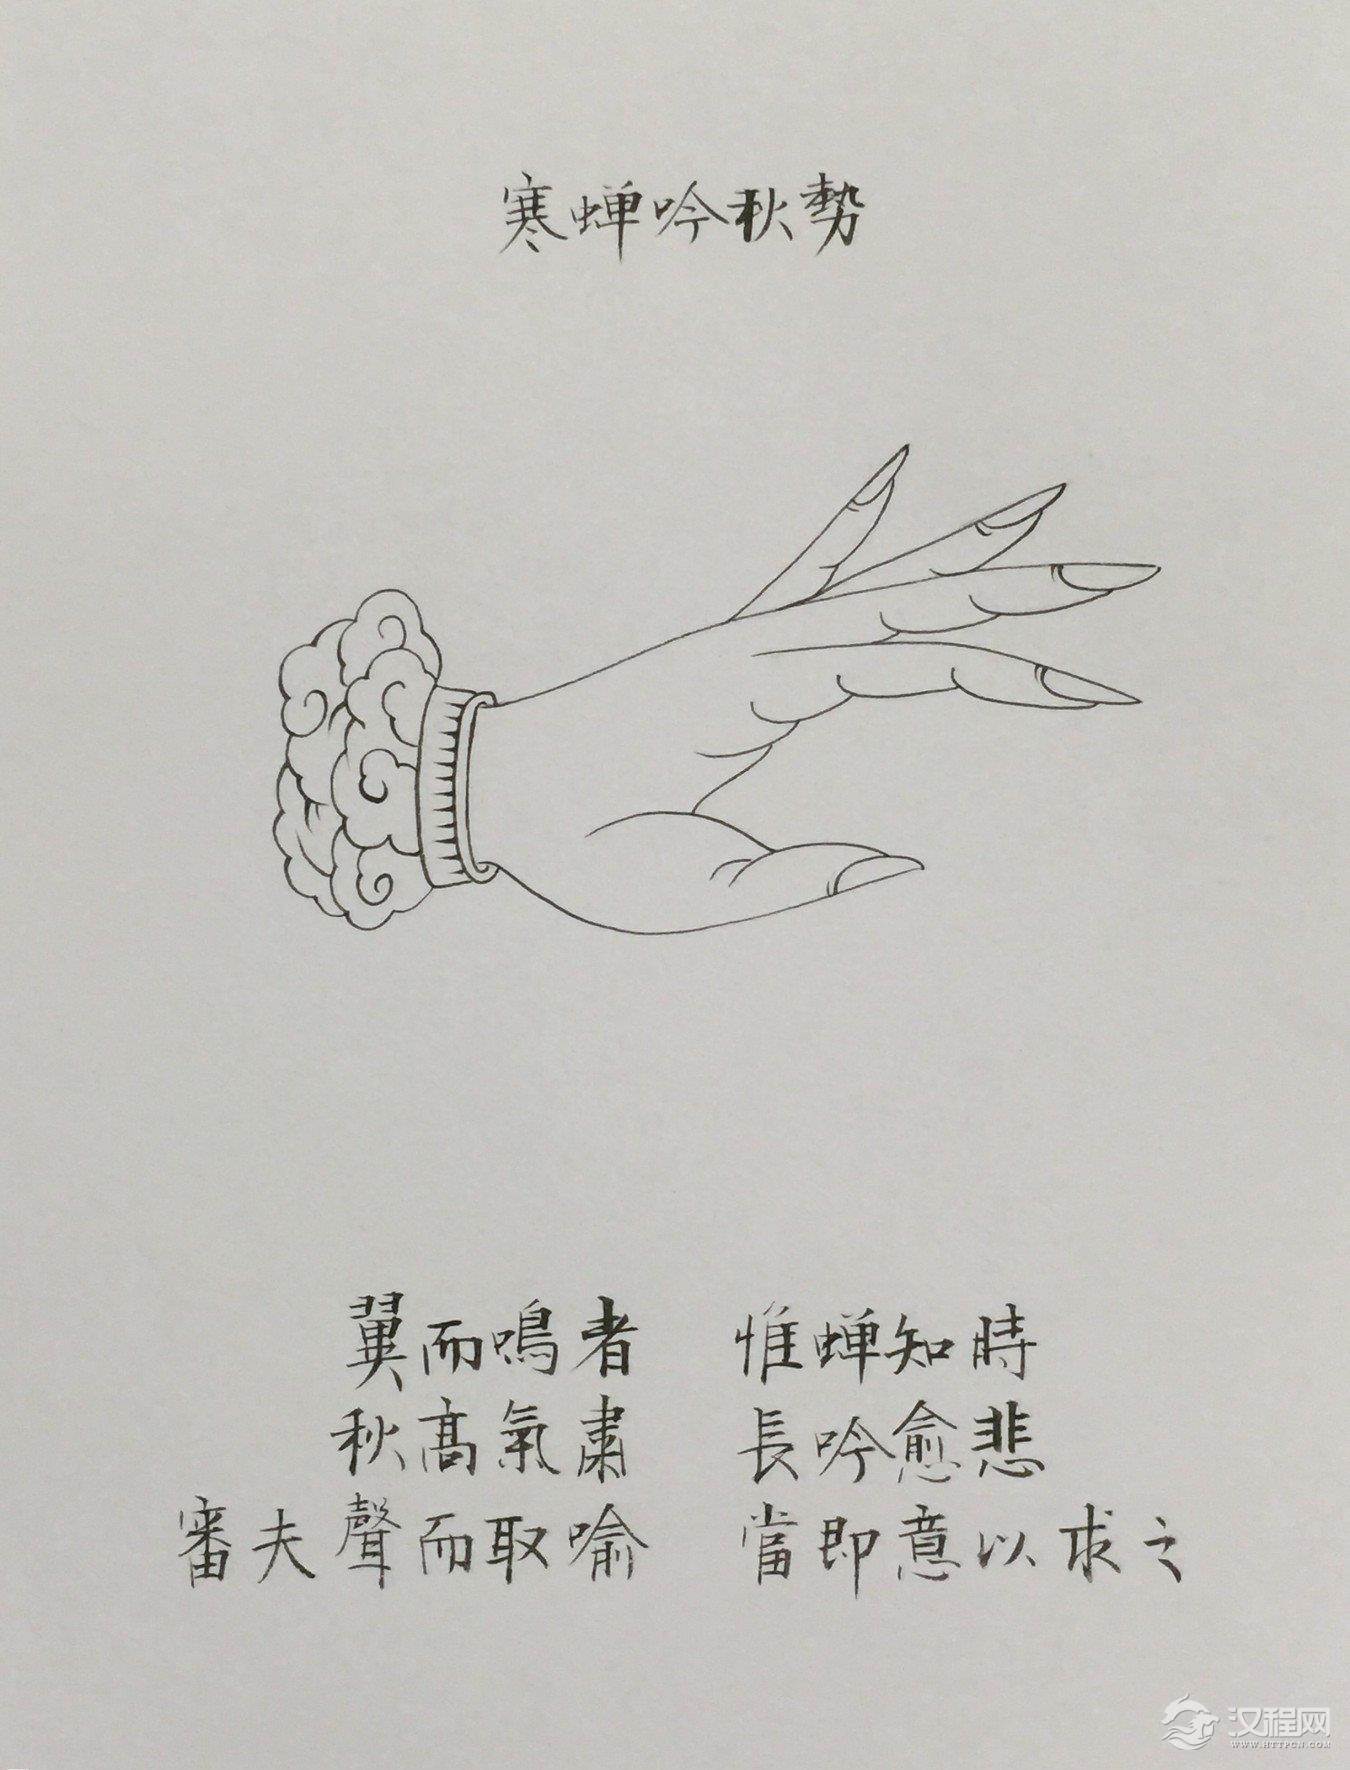 寒蝉吟秋勢
翼而鳴者 惟蝉知時
秋髙氣肅 長吟愈悲
審夫聲而取喻 當即意以求之
汉程网
WWW.HTTPCN.COM